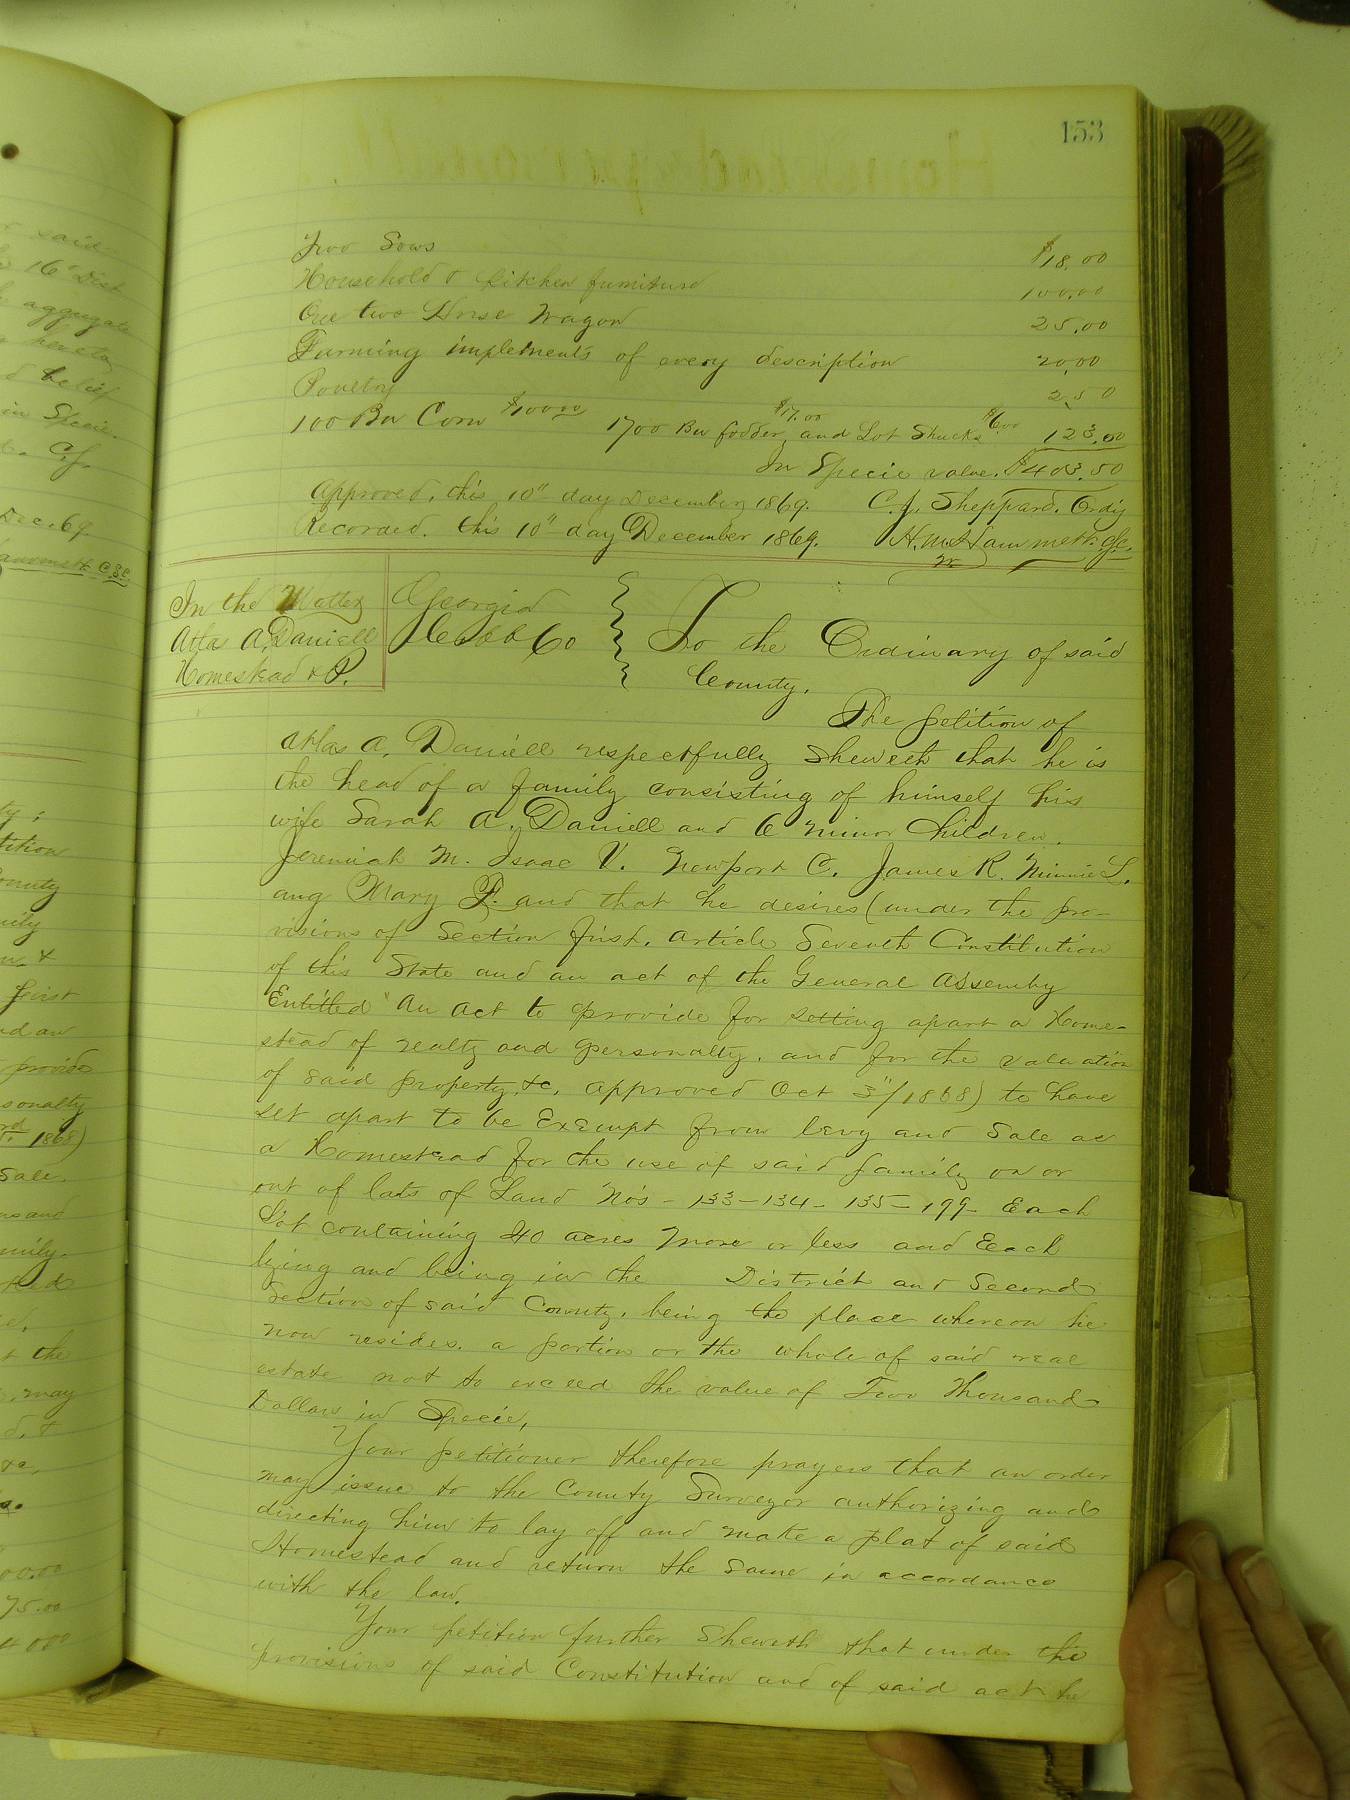 153
Two Sows $18.00
Household & Kitchen furniture 100.00
One two Horse Wagon 25.00
Farming implements of every description 20.00
Poultry 2.50
100 Bu Corn $100.00 1700 Bu fodder $17.00 and Lot Shucks $6.00 123.00
In Specie value. $403.50
Approved, this 10" day December 1869. C.J. Sheppard. Ordy
Recorded. this 10" day December 1869. H.M. Hammett
In the Matter
Atlas A. Daniell
Homestead & P.
Georgia
Cobb Co
To the Ordinary of said
County.
The petition of
Atlas A. Daniell respectfully Sheweth that he is
the head of a family consisting of himself his
wife Sarah A. Daniell and 6 minor Children.
Jeremiah M. Isaac V. Newport C. James R. Minnie L.
ang Mary F. and that he desires (under the pro-
visions of Section first. Article Seventh Constitution
of this State and an act of the General Assembly
Entitled "An Act to provide for setting apart a Home-
stead of realty and personalty. and for the valuation
of said property, &c. approved Oct 3"/1868) to have
set apart to be Exempt from levy and Sale as
a Homestead for the use of said family on or
out of lots of Land No's - 133 - 134 - 135 - 199 - Each
Lot containing 40 acres more or less and Each
lying and being in the District and Second
Section of said County, being the place whereon he
now resides. a portion or the whole of said real
estate not to exceed the value of Two Thousand
Dollars in Specie,
Your petitioner therefore prayers that an order
may issue to the County Surveyor authorizing and
directing him to lay off and make a plat of said
Homestead and return the same in accordance
with the law.
Your petition further Sheweth that under the
provisions of said Constitution and of said act he